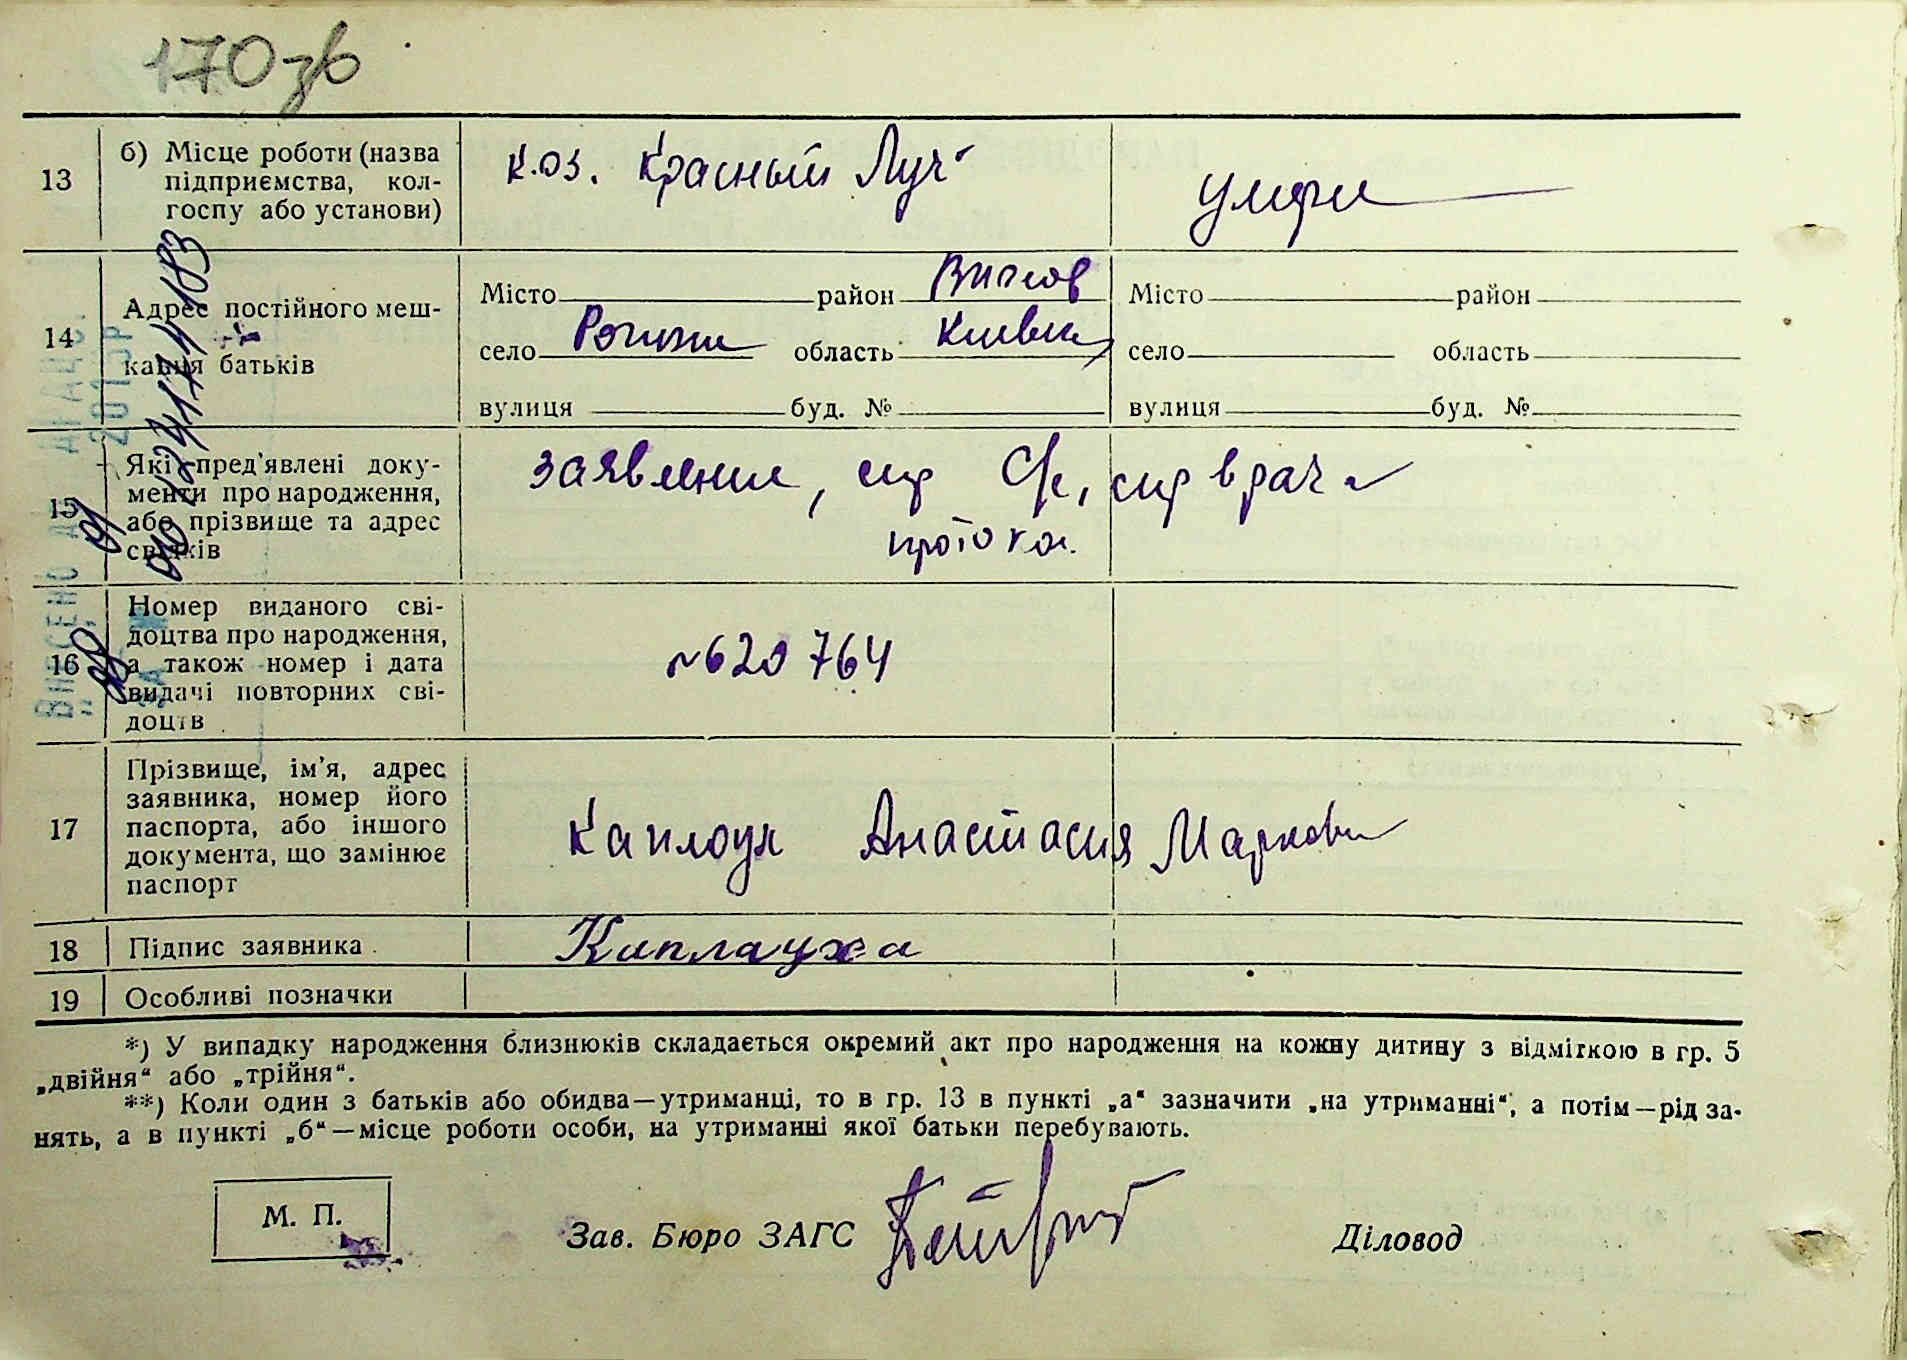 170зв
13 б) Місце роботи (назва підприємства, кол-госпу або установи) к.оз. Красный Луч
14 Адрес постійного меш-кання батьків
Місто район Місто район
село область Київск село область
вулиця буд. № вулиця буд. №
15 Які пред'явлені доку-менти про народження, або прізвище та адрес свідків
заявление, спр с/с, спр врача
протокол.
16 Номер виданого сві-доцтва про народження, а також номер і дата видачі повторних сві-доцтв
№620764
17 Прізвище, ім'я, адрес заявника, номер його паспорта, або іншого документа, що замінює паспорт
Анастасия Марковн
18 Підпис заявника Каплауха
19 Особливі позначки
*) У випадку народження близнюків складається окремий акт про народження на кожну дитину з відміткою в гр. 5
„двійня“ або „трійня“.
**) Коли один з батьків або обидва—утриманці, то в гр. 13 в пункті „а“ зазначити „на утриманні“, а потім—рід за-
нять, а в пункті „б“—місце роботи особи, на утриманні якої батьки перебувають.
М. П.
Зав. Бюро ЗАГС
Діловод